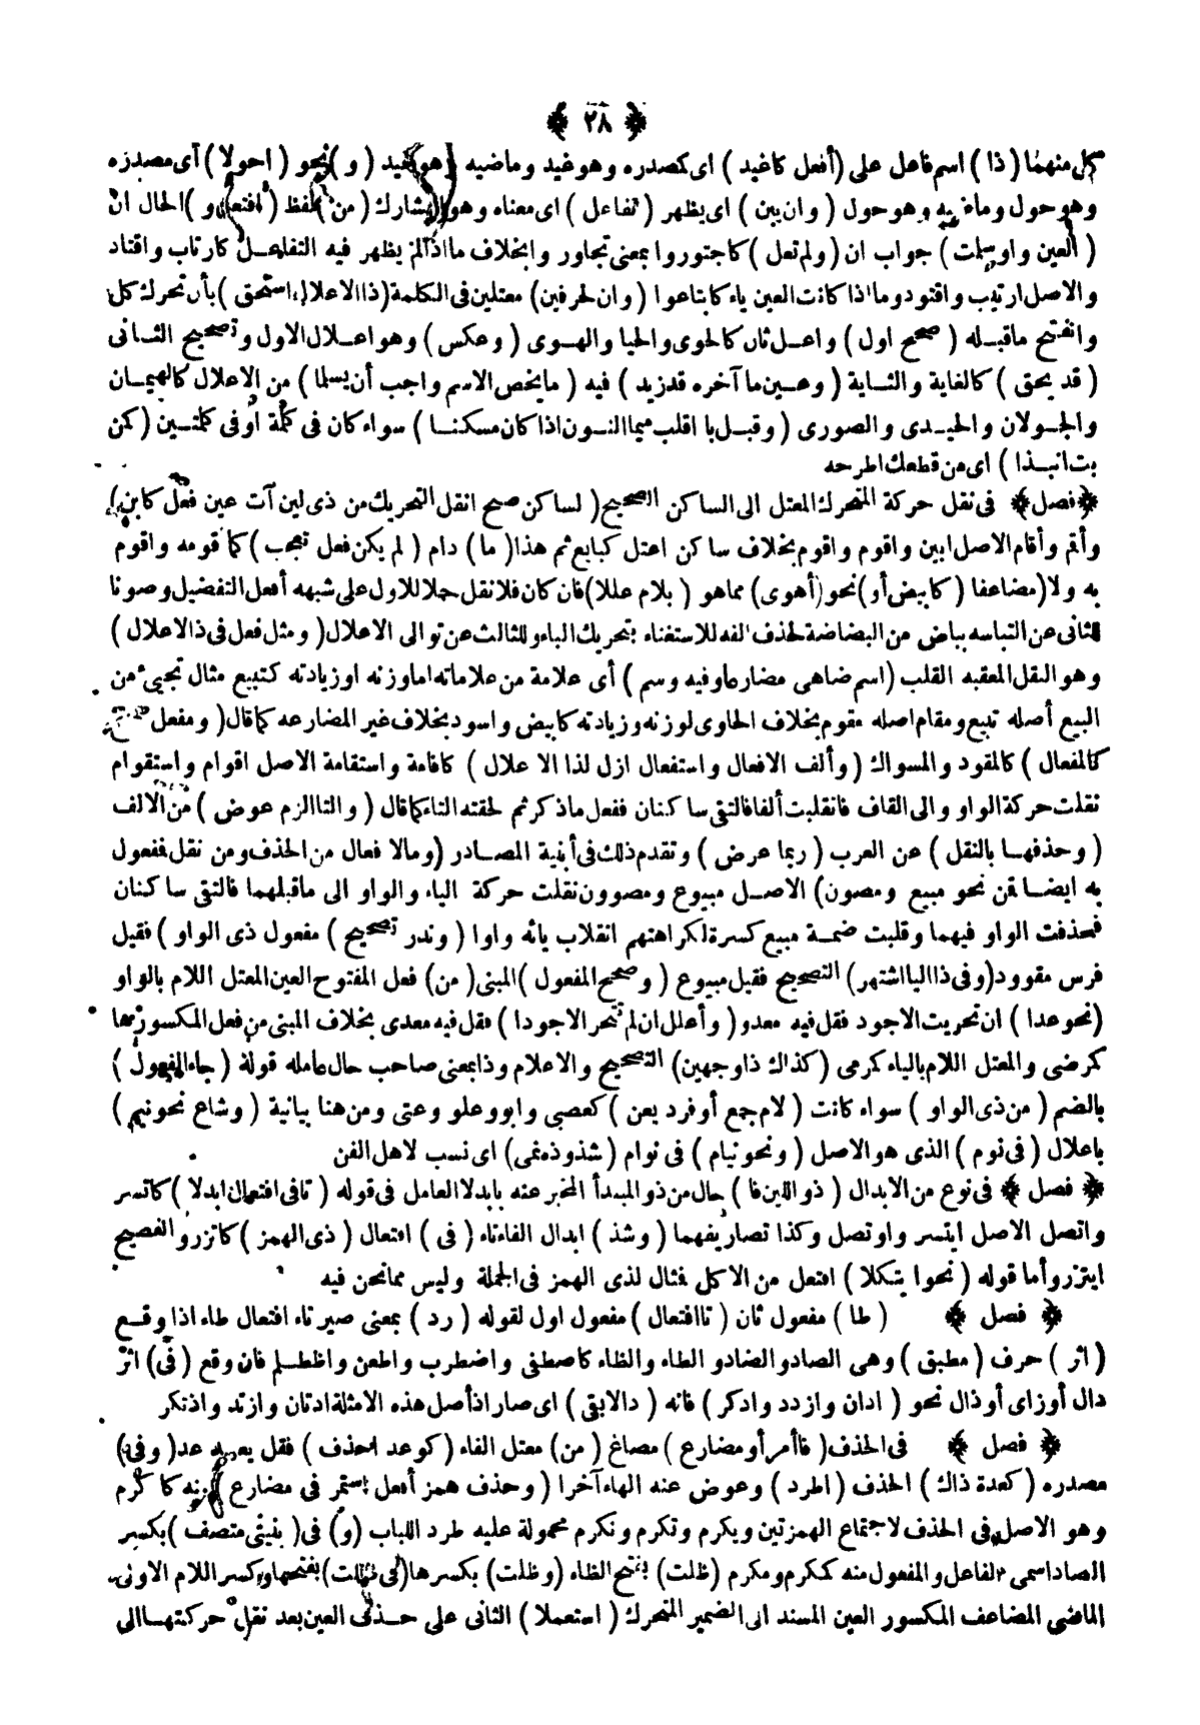 ﴿ ٢٨ ﴾
كل منهما ( ذا ) اسم فاعل على (أفعل كاغيد ) اى كمصدره وهو غيد وماضيه وهو غيد ( و ) نحو ( احولا ) أى مصدره
وهو حول وماضيه وهو حول ( وان يبن ) اى يظهر ( تفاعل ) اى معناه وهو التشارك ( من ) لفظ ( افتعل و ) الحال ان
( العين واو سلمت ) جواب ان ( ولم تعل ) كاجتوروا بمعنى تجاور وا بخلاف ما اذا لم يظهر فيه التفاعل كارتاب واقتاد
والاصل ارتيب واقتود وما اذا كانت العين ياء كابتاعوا ( وان لحرفين ) معتلين فى الكلمة ( ذا الاعلال استحق ) بأن تحرك كل
وانفتح ماقبله ( صحح اول ) واعل ثان كالحوى والحيا والهوى ( وعكس ) وهو اعلال الاول وتصحيح الثانى
( قد يحق ) كالغاية والثاية ( وعين ما آخره قد زيد ) فيه ( ما يخص الاسم واجب أن يسلما ) من الاعلال كالهيمان
والجولان والحيدى والصورى ( وقبل با اقلب ميما النون اذا كان مسكنا ) سواء كان فى كلمة أو فى كلمتين ( كمن
بت انبذا ) اى من قطعك اطرحه
﴿ فصل ﴾ فى نقل حركة المتحرك المعتل الى الساكن الصحيح ( لساكن صح انقل التحريك من ذى لين آت عين فعل كابن )
وأقم وأقام الاصل ابين واقوم واقوم بخلاف ساكن اعتل كبايع ثم هذا ( ما ) دام ( لم يكن فعل تعجب ) كما قومه واقوم
به ولا ( مضاعفا ( كابيض أو ) نحو ( أهوى ) مما هو ( بلام عللا ) فان كان فلا نقل حملا للاول على شبهه أفعل التفضيل وصونا
للثانى عن التباسه بباض من البضاضة لحذف الفه للاستغناء بتحريك الباء وللثالث عن توالى الاعلال ( ومثل فعل فى ذا الاعلال )
وهو النقل المعقبه القلب ( اسم ضاهى مضارعا وفيه وسم ) أى علامة من علاماته اما وزنه او زيادته كتبيع مثال تحلئ من
البيع أصله تبيع ومقام اصله مقوم بخلاف الحاوى لوزنه وزيادته كابيض واسود بخلاف غير المضارعه كما قال ( ومفعل صحح
كالمفعال ) كالمقود والمسواك ( وألف الافعال واستفعال ازل لذا الاعلال ) كاقامة واستقامة الاصل اقوام واستقوام
نقلت حركة الواو والى القاف فانقلبت ألفا فالتقى ساكنان ففعل ماذكر ثم لحقته التاء كما قال ( والتا الزم عوض ) من الالف
( وحذفها بالنقل ) عن العرب ( ربما عرض ) وتقدم ذلك فى أبنية المصادر ( وما لافعال من الحذف ومن نقل فمفعول
به ايضا قمن نحو مبيع ومصون ) الاصل مبيوع ومصوون نقلت حركة الياء والواو الى ماقبلهما فالتقى ساكنان
فحذفت الواو فيهما وقلبت ضمة مبيع كسرة لكراهتهم انقلاب يائه واوا ( وندر تصحيح ) مفعول ذى الواو ) فقيل
فرس مقوود ( وفى ذا اليا اشتهر ) التصحيح فقيل مبيوع ( وصحح المفعول ) المبنى ( من ) فعل المفتوح العين المعتل اللام بالواو
( نحو عدا ) ان تحريت الاجود فقل فيه معدو ( وأعلل ان لم تتحر الاجودا ) فقل فيه معدى بخلاف المبنى من فعل المكسورها
كمرضى والمعتل اللام بالياء كرمى ( كذاك ذا وجهين ) التصحيح والاعلام وذا بمعنى صاحب حال عامله قوله ( جاء الفعول )
بالضم ( من ذى الواو ) سواء كانت ( لام جمع أو فرد يعن ) كعصى وابو وعلو وعتى ومن هنا بيانية ( وشاع نحو نيم )
باعلال ( فى نوم ) الذى هو الاصل ( ونحو نيام ) فى نوام ( شذوذه نمى ) اى نسب لاهل الفن
﴿ فصل ﴾ فى نوع من الابدال ( ذو اللين فا ) حال من ذو المبتدأ المخبر عنه بابدلا العامل فى قوله ( تا فى افتعال ابدلا ) كاتسر
واتصل الاصل ايتسر واوتصل وكذا تصاريفهما ( وشذ ) ابدال الفاء تاء ( فى ) افتعال ( ذى الهمز ) كاتزر والفصيح
ايتزر وأما قوله ( نحو ايتكلا ) افتعل من الاكل فمثال لذى الهمز فى الجملة وليس مما نحن فيه
﴿ فصل ﴾ ( طا ) مفعول ثان ( تا افتعال ) مفعول اول لقوله ( رد ) بمعنى صير تاء افتعال طاء اذا وقع
( اثر ) حرف ( مطبق ) وهى الصاد والضاد والطاء والظاء كاصطفى واضطرب واطعن واظطلم فان وقع ( فى ) اثر
دال أو زاى أو ذال نحو ( ادان وازدد وادكر ) فانه ( دالا بقى ) اى صار اذ أصل هذه الامثلة ادتان وازتد واذتكر
﴿ فصل ﴾ فى الحذف ( فا أمر أو مضارع ) مصاغ ( من ) معتل الفاء ( كوعد احذف ) فقل يعد عد ( وفى )
مصدره ( كعدة ذاك ) الحذف ( اطرد ) وعوض عنه الهاء آخرا ( وحذف همز أفعل استمر فى مضارع ) منه كاكرم
وهو الاصل فى الحذف لاجتماع الهمزتين ويكرم وتكرم ونكرم محمولة عليه طرد اللباب ( و ) فى ( بنيتى متصف ) بكسر
الصاد اسمى الفاعل والمفعول منه كمكرم ومكرم ( ظلت ) بفتح الظاء ( وظلت ) بكسرها ( فى ظللت ) بفتحها وكسر اللام الاولى
الماضى المضاعف المكسور العين المسند الى الضمير المتحرك ( استعملا ) الثانى على حذف العين بعد نقل حركتها الى